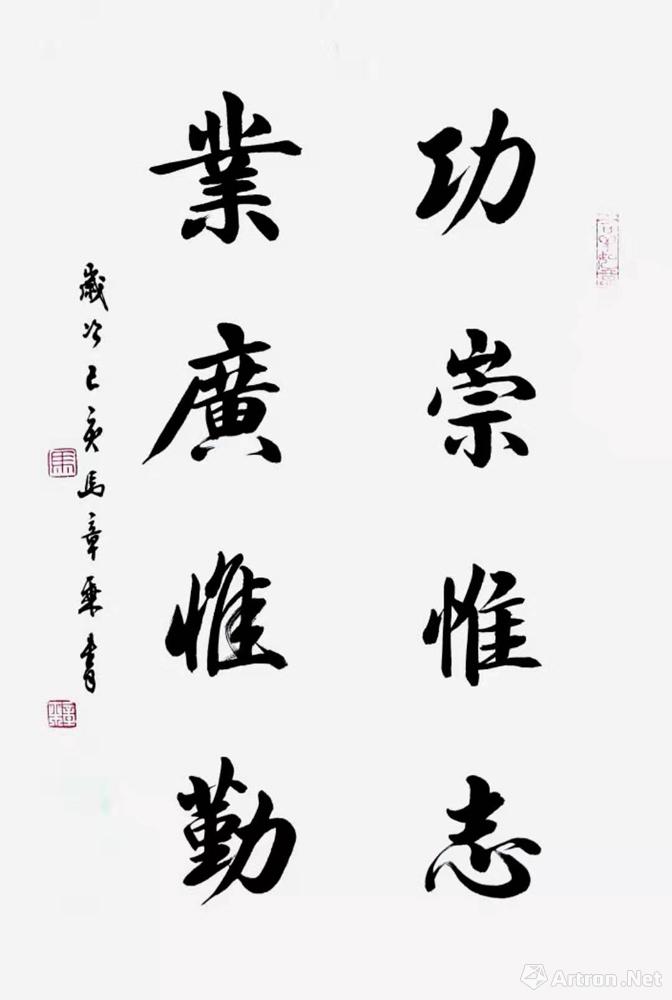 功崇惟志
業廣惟勤
歲次己亥馬章乘書
馬
Artron.Net